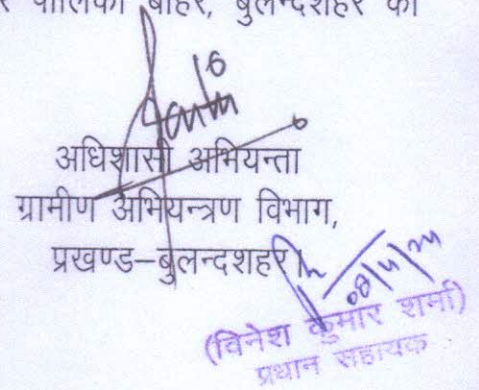 पालिका बाहर, बुलन्दशहर को
अधिशासी अभियन्ता
ग्रामीण अभियन्त्रण विभाग,
प्रखण्ड–बुलन्दशहर।
(विनेश कुमार शर्मा)
प्रधान सहायक